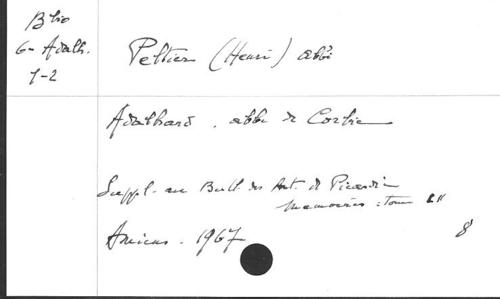 Blio
G- Adalh.
1-2
Peltier (Henri) abbé
Adalhard. abbé de Corbie
Suppl. au Bull. des Ant. de Picardie
Memoires : Tome LII
Amiens. 1967
8